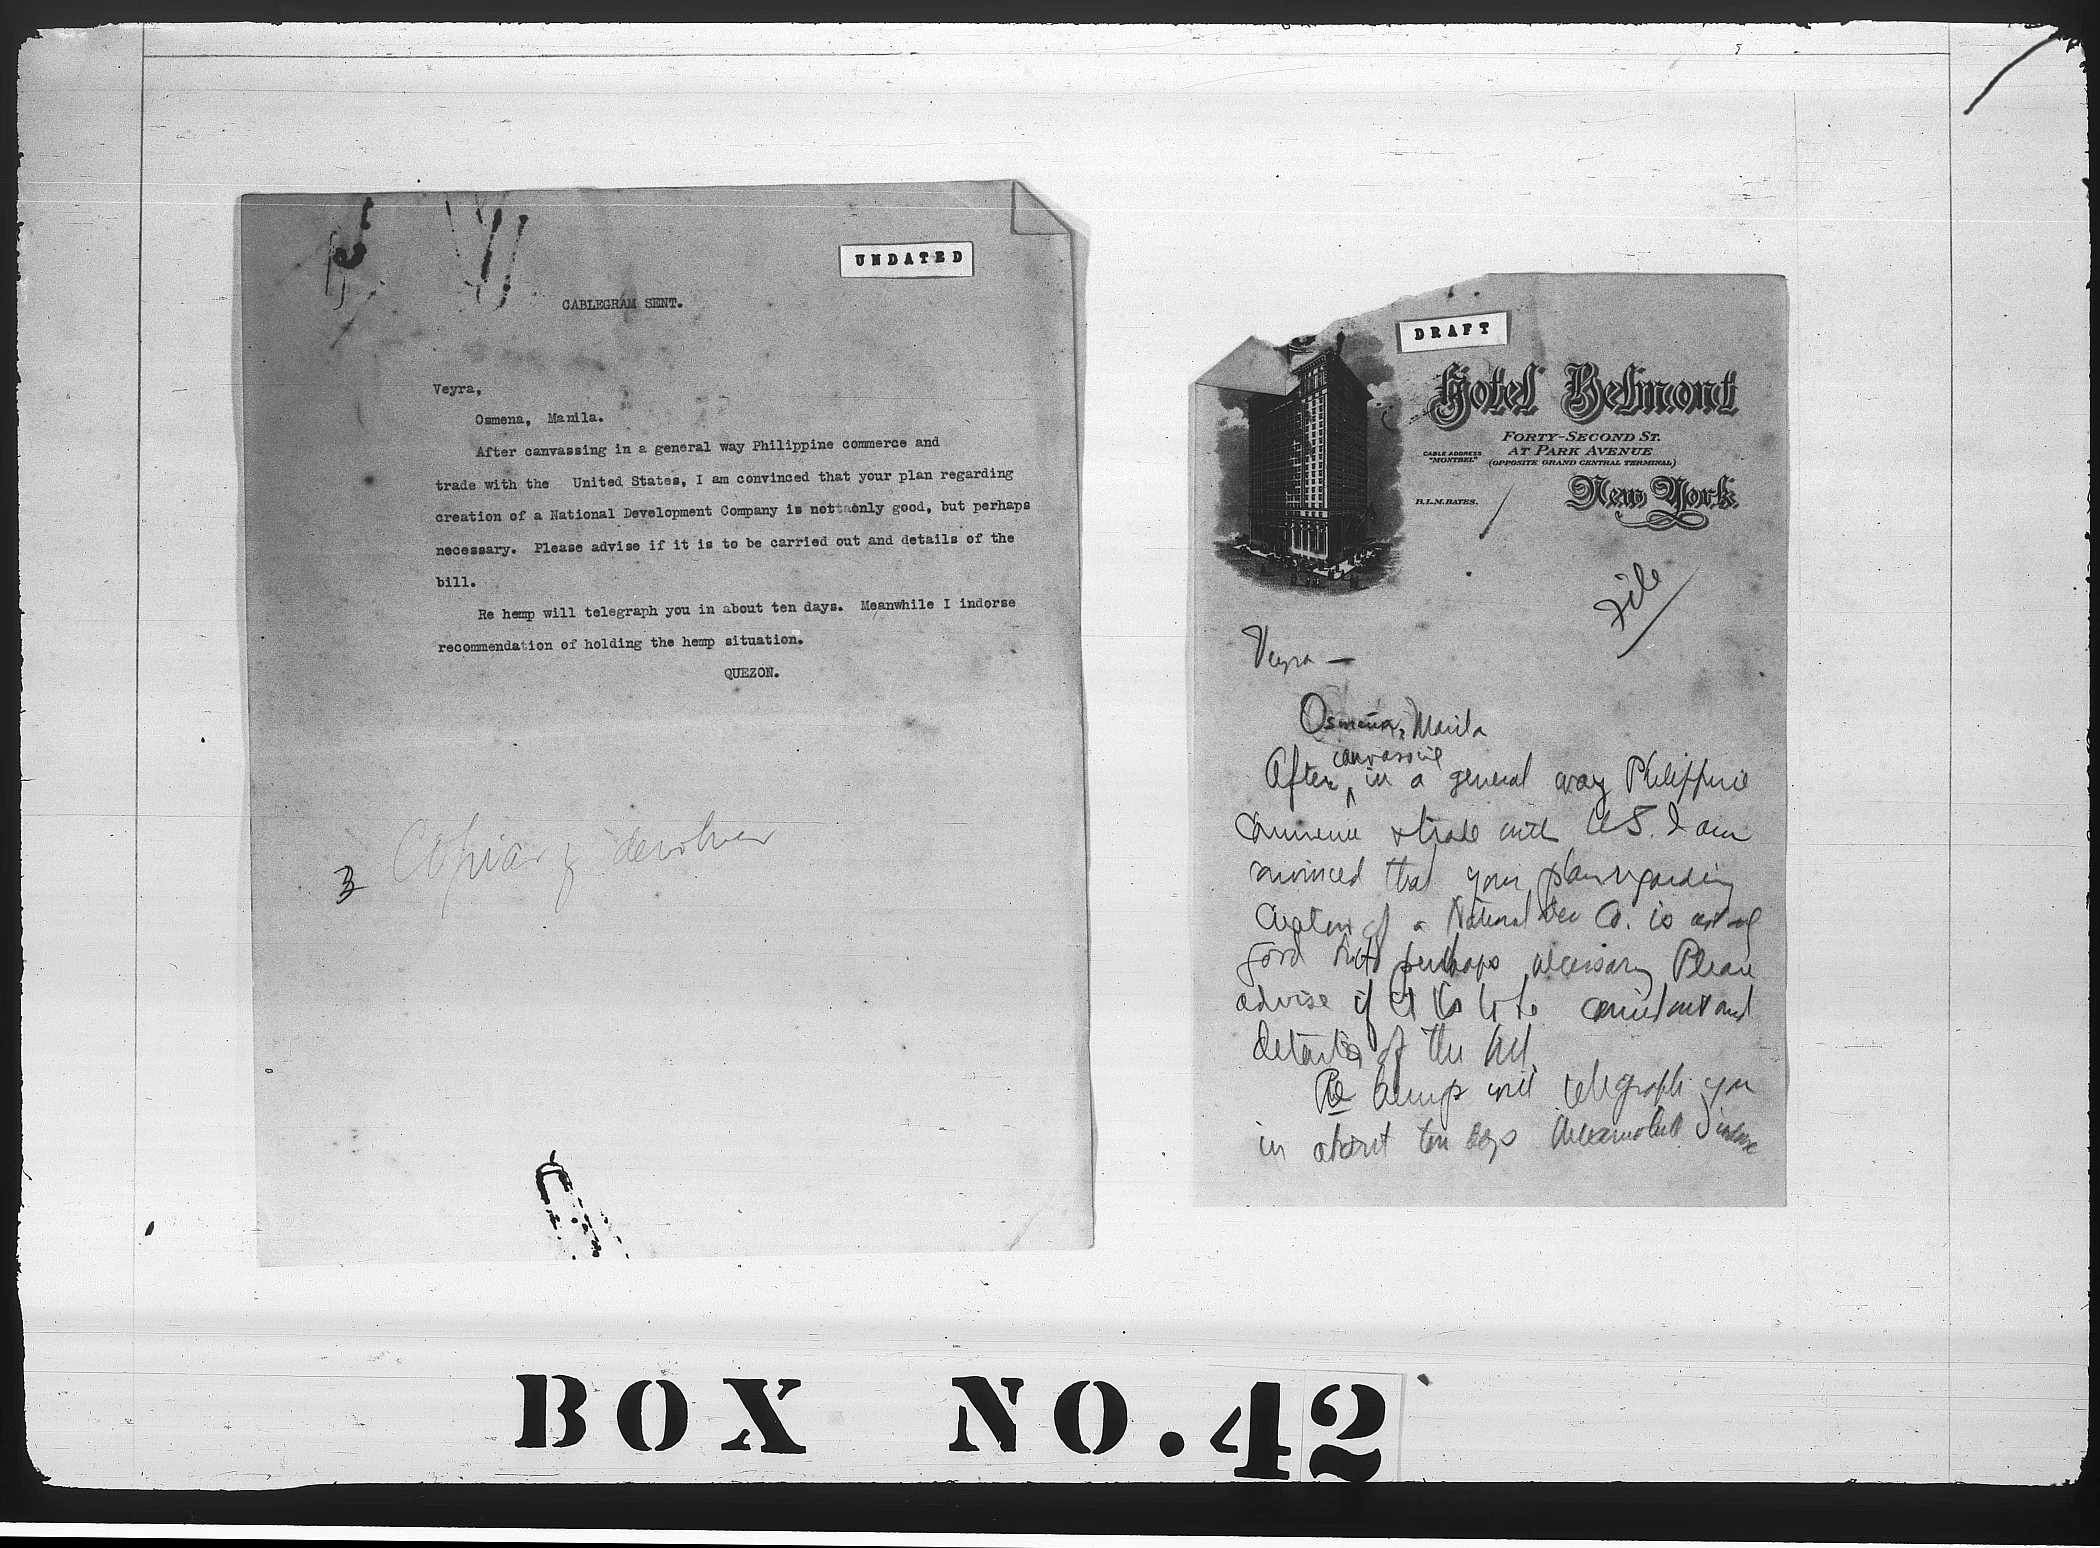 UNDATED
CABLEGRAM SENT.
Veyra,
Osmena, Manila.
After canvassing in a general way Philippine commerce and
trade with the United States, I am convinced that your plan regarding
creation of a National Development Company is nottaonly good, but perhaps
necessary. Please advise if it is to be carried out and details of the
bill.
Re hemp will telegraph you in about ten days. Meanwhile I indorse
recommendation of holding the hemp situation.
QUEZON.
3 Copiar y devolver
DRAFT
Hotel Belmont
FORTY-SECOND ST.
AT PARK AVENUE
(OPPOSITE GRAND CENTRAL TERMINAL)
CABLE ADDRESS
"MONTBEL"
New York
B.L.M. BATES.
File
Veyra —
Osmeña, Manila
canvassing
After in a general way Philippine
commerce & trade with US. I am
convinced that your plan regarding
creation of a National Dev Co. is not only
good but perhaps necessary Please
advise if it is to be carried out and
details of the bill.
Re hemp will telegraph you
in about ten days Meanwhile I indorse
BOX NO. 42